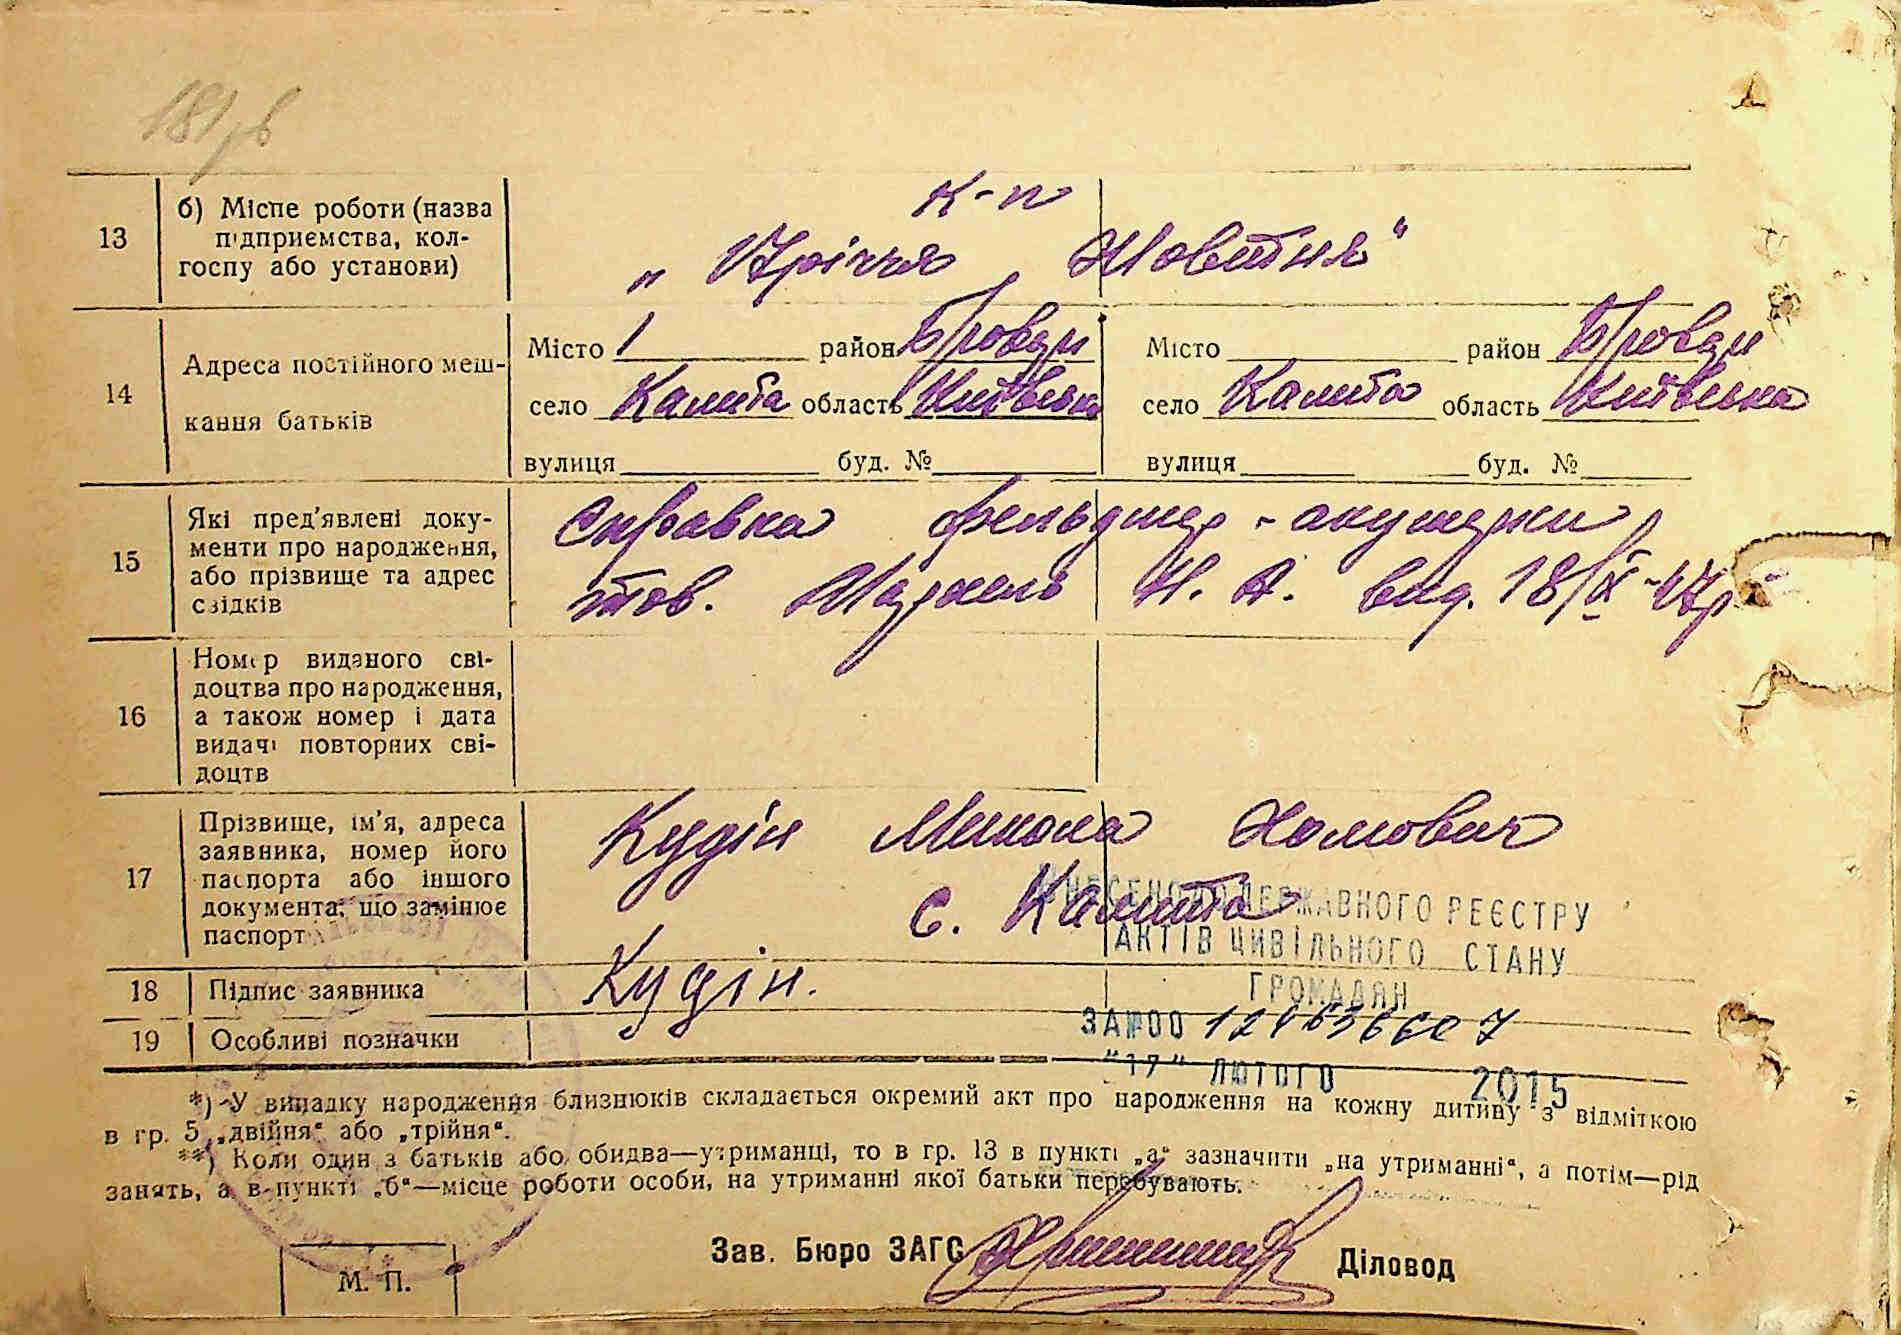 13
б) Місце роботи (назва
підприємства, кол-
госпу або установи)
к-п
„ 17річчя Жовтня“
14
Адреса постійного меш-
кання батьків
Місто район Бровари
село Калита область Київська
вулиця буд. №
Місто район Бровари
село Калита область Київська
вулиця буд. №
15
Які пред'явлені доку-
менти про народження,
або прізвище та адрес
свідків
Справка фельдшер-акушерки
тов. Н. А. вид. 18/ІХ-47р
16
Номер виданого сві-
доцтва про народження,
а також номер і дата
видачі повторних сві-
доцтв
17
Прізвище, ім'я, адреса
заявника, номер його
паспорта або іншого
документа, що замінює
паспорт
Кудін Микола Хомович
с. Калита
ВНЕСЕНО ДО ДЕРЖАВНОГО РЕЄСТРУ
АКТІВ ЦИВІЛЬНОГО СТАНУ
ГРОМАДЯН
18
Підпис заявника
Кудін.
19
Особливі позначки
ЗА №00
"17" ЛЮТОГО 2015
*) У випадку народження близнюків складається окремий акт про народження на кожну дитину з відміткою
в гр. 5 „двійня“ або „трійня“.
**) Коли один з батьків або обидва—утриманці, то в гр. 13 в пункті „а“ зазначити „на утриманні“, а потім—рід
занять, а в пункті „б“—місце роботи особи, на утриманні якої батьки перебувають.
Зав. Бюро ЗАГС
Діловод
М. П.